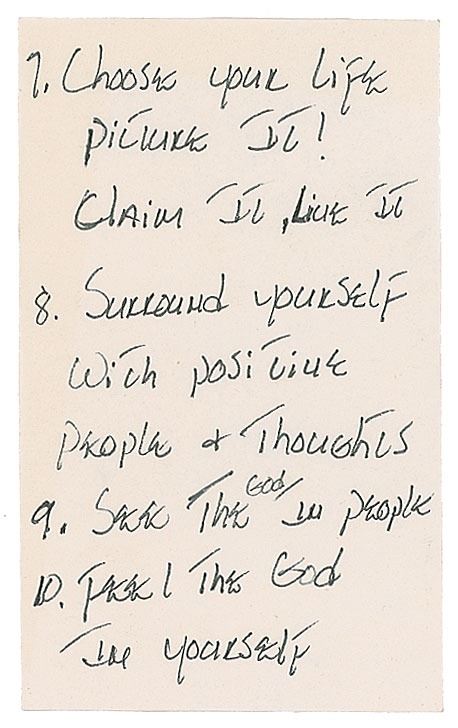 7. Choose your Life
Picture It!
Claim It, Live It
8. Surround yourself
With positive
people & Thoughts
9. See The God In people
10. Feel The God
In yourself